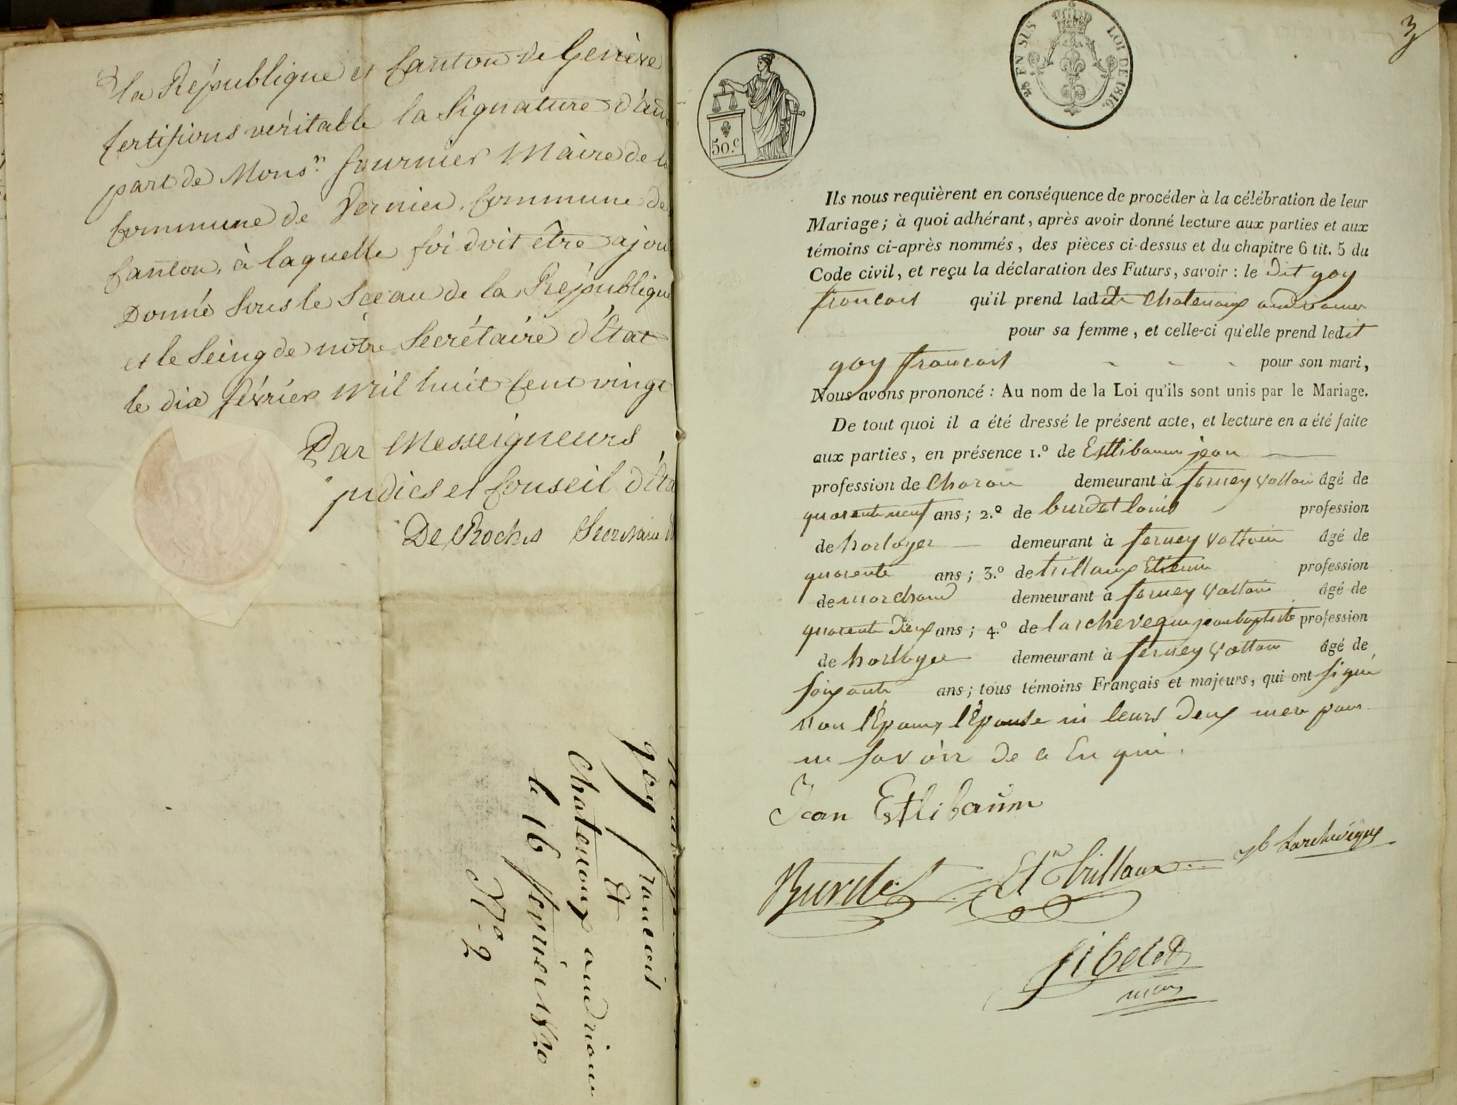 la République et Canton de Genève
Certifions véritable la Signature d'au
part de Monsr. fournier Maire de l
Commune de Vernier, Commune de
Canton, à laquelle foi doit être ajou
Donné sous le Sceau de la République
et le Seing de nôtre Secrétaire d'Etat
le dix février Mil huit Cent vingt
Par Messeigneurs
indics et Conseil d'Eta
De Roches Secretaire d
Mariage
goy francois
Et
Chatenoux andrione
le 16 fevrier 1820
N° 2
3
50.c
25 EN SUS LOI DE 1816.
Ils nous requièrent en conséquence de procéder à la célébration de leur
Mariage; à quoi adhérant, après avoir donné lecture aux parties et aux
témoins ci-après nommés, des pièces ci-dessus et du chapitre 6 tit. 5 du
Code civil, et reçu la déclaration des Futurs, savoir : le dit goy
francois qu'il prend ladite Chatenoux
pour sa femme, et celle-ci qu'elle prend ledit
goy francois pour son mari,
Nous avons prononcé : Au nom de la Loi qu'ils sont unis par le Mariage.
De tout quoi il a été dressé le présent acte, et lecture en a été faite
aux parties, en présence 1.º de Estlibaum jean
profession de Charon demeurant à ferney voltair âgé de
quarente neuf ans; 2.º de burdet louis profession
de horloger demeurant à ferney voltair âgé de
quarente ans; 3.º de trillaux Etienne profession
de marchand demeurant à ferney voltair âgé de
quarente deux ans; 4.º de larcheveque jean baptiste profession
de horloger demeurant à ferney voltair âgé de
soixante ans; tous témoins Français et majeurs, qui ont signé
non l'Epoux, l'Epouse ni leurs deux mere pour
ne savoir de ce Enquis.
Jean Estlibaum
Burdet Etne trillaux jb Larchevêque
fibelet
maire